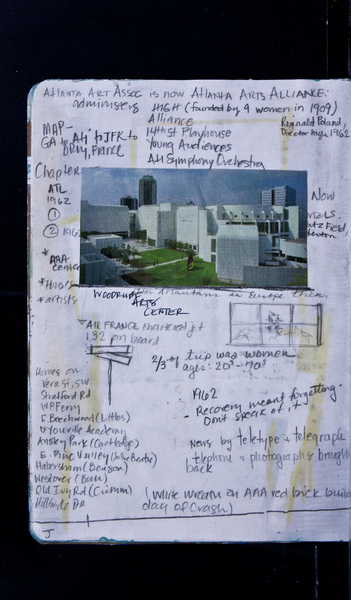 ATLANTA ART ASSOC is now ATLANTA ARTS ALLIANCE:
administers HIGH (founded by 9 women in 1909)
Alliance
14th St Playhouse
Young Audiences
Atl Symphony Orchestra
Reginald Poland,
Director High 1962
MAP-
GA to Atl to JFK to
Orly, France
Chapter
ATL
1962
①
② 1962
*
AAA
center
*tours
*artists
Now
Field,
for Atlantans in Europe then,
WOODRUFF ARTS
CENTER
AIR FRANCE chartered jet
132 on board
2/3 of trip was women
ages: 20s-70s
Homes on
Vera St, SW
Shatford Rd
W P Ferry
E. Beechwood (Littles)
D'Youville Academy
Ansley Park
E. Pine Valley
Habersham (Benson)
Nestover (Bull)
Old Ivy Rd (Crimm)
Hillside Dr
1962
- Recovery meant forgetting.
Don't speak of it
News by teletype + telegraph
telephone + photographs brought
back
(White wreath on AAA red brick build
day of crash)
J